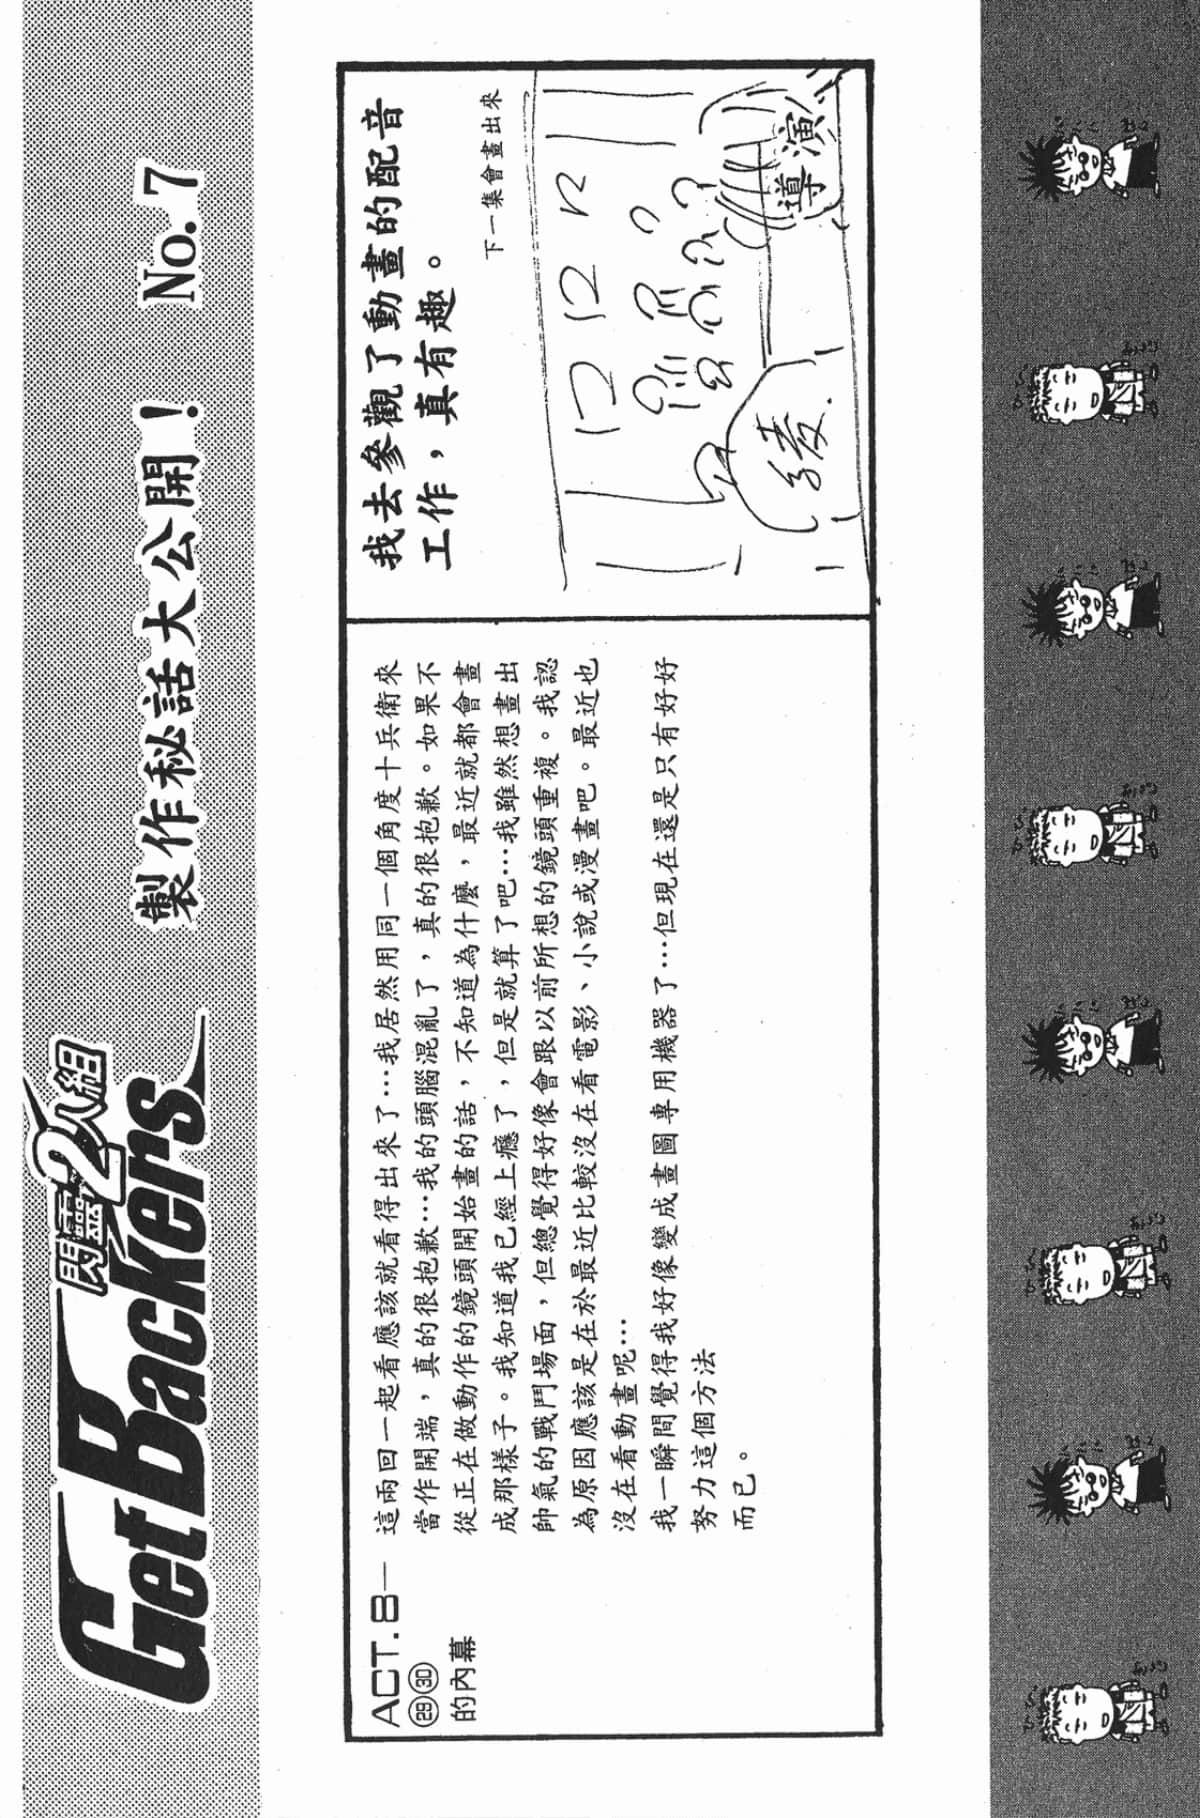 閃靈2人組
GetBackers
製作秘話大公開！ No.7
ACT.8—
㉙㉚
的內幕
這兩回一起看應該就看得出來了…我居然用同一個角度十兵衛來
當作開端，真的很抱歉…我的頭腦混亂了，真的很抱歉。如果不
從正在做動作的鏡頭開始畫的話，不知道為什麼，最近就都會畫
成那樣子。我知道我已經上癮了，但是就算了吧…我雖然想畫出
帥氣的戰鬥場面，但總覺得好像會跟以前所想的鏡頭重複。我認
為原因應該是在於最近比較沒在看電影、小說或漫畫吧。最近也
沒在看動畫呢…
我一瞬間覺得我好像變成畫圖專用機器了…但現在還是只有好好
努力這個方法
而已。
我去參觀了動畫的配音
工作，真有趣。
下一集會畫出來
導演
綾